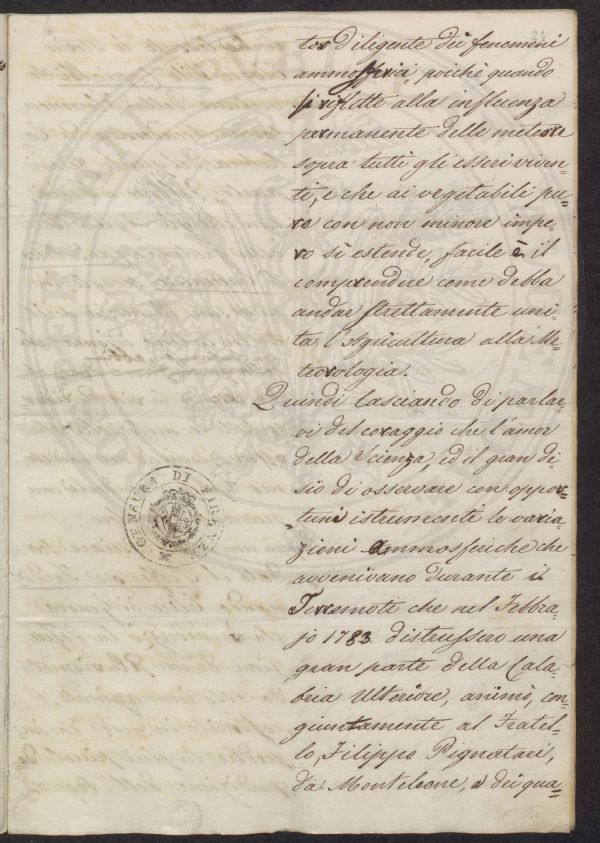 24
tor diligente dei fenomeni
ammosferici, poichè quando
si riflette alla influenza
permanente delle meteore
sopra tutti gli esseri viven-
ti, e che ai vegetabili pu=
re con non minore impe-
ro si estende, facile è il
comprendere come debba
andar strettamente uni-
ta l'Agricultura alla Me-
teorologia.
Quindi lasciando di parlar-
vi del coraggio che l'amor
della Scienza, ed il gran de-
sio di osservare con oppor-
=tuni istrumenti le varia-
zioni ammosferiche che
avvenivano durante i
Terremoti che nel Febbra-
jo 1783 distrussero una
gran parte della Cala-
bria Ulteriore, animò, con-
giuntamente al Fratel-
lo, Filippo Pignatari,
da Monteleone, e dei qua-
CENSURA DI FIRENZE